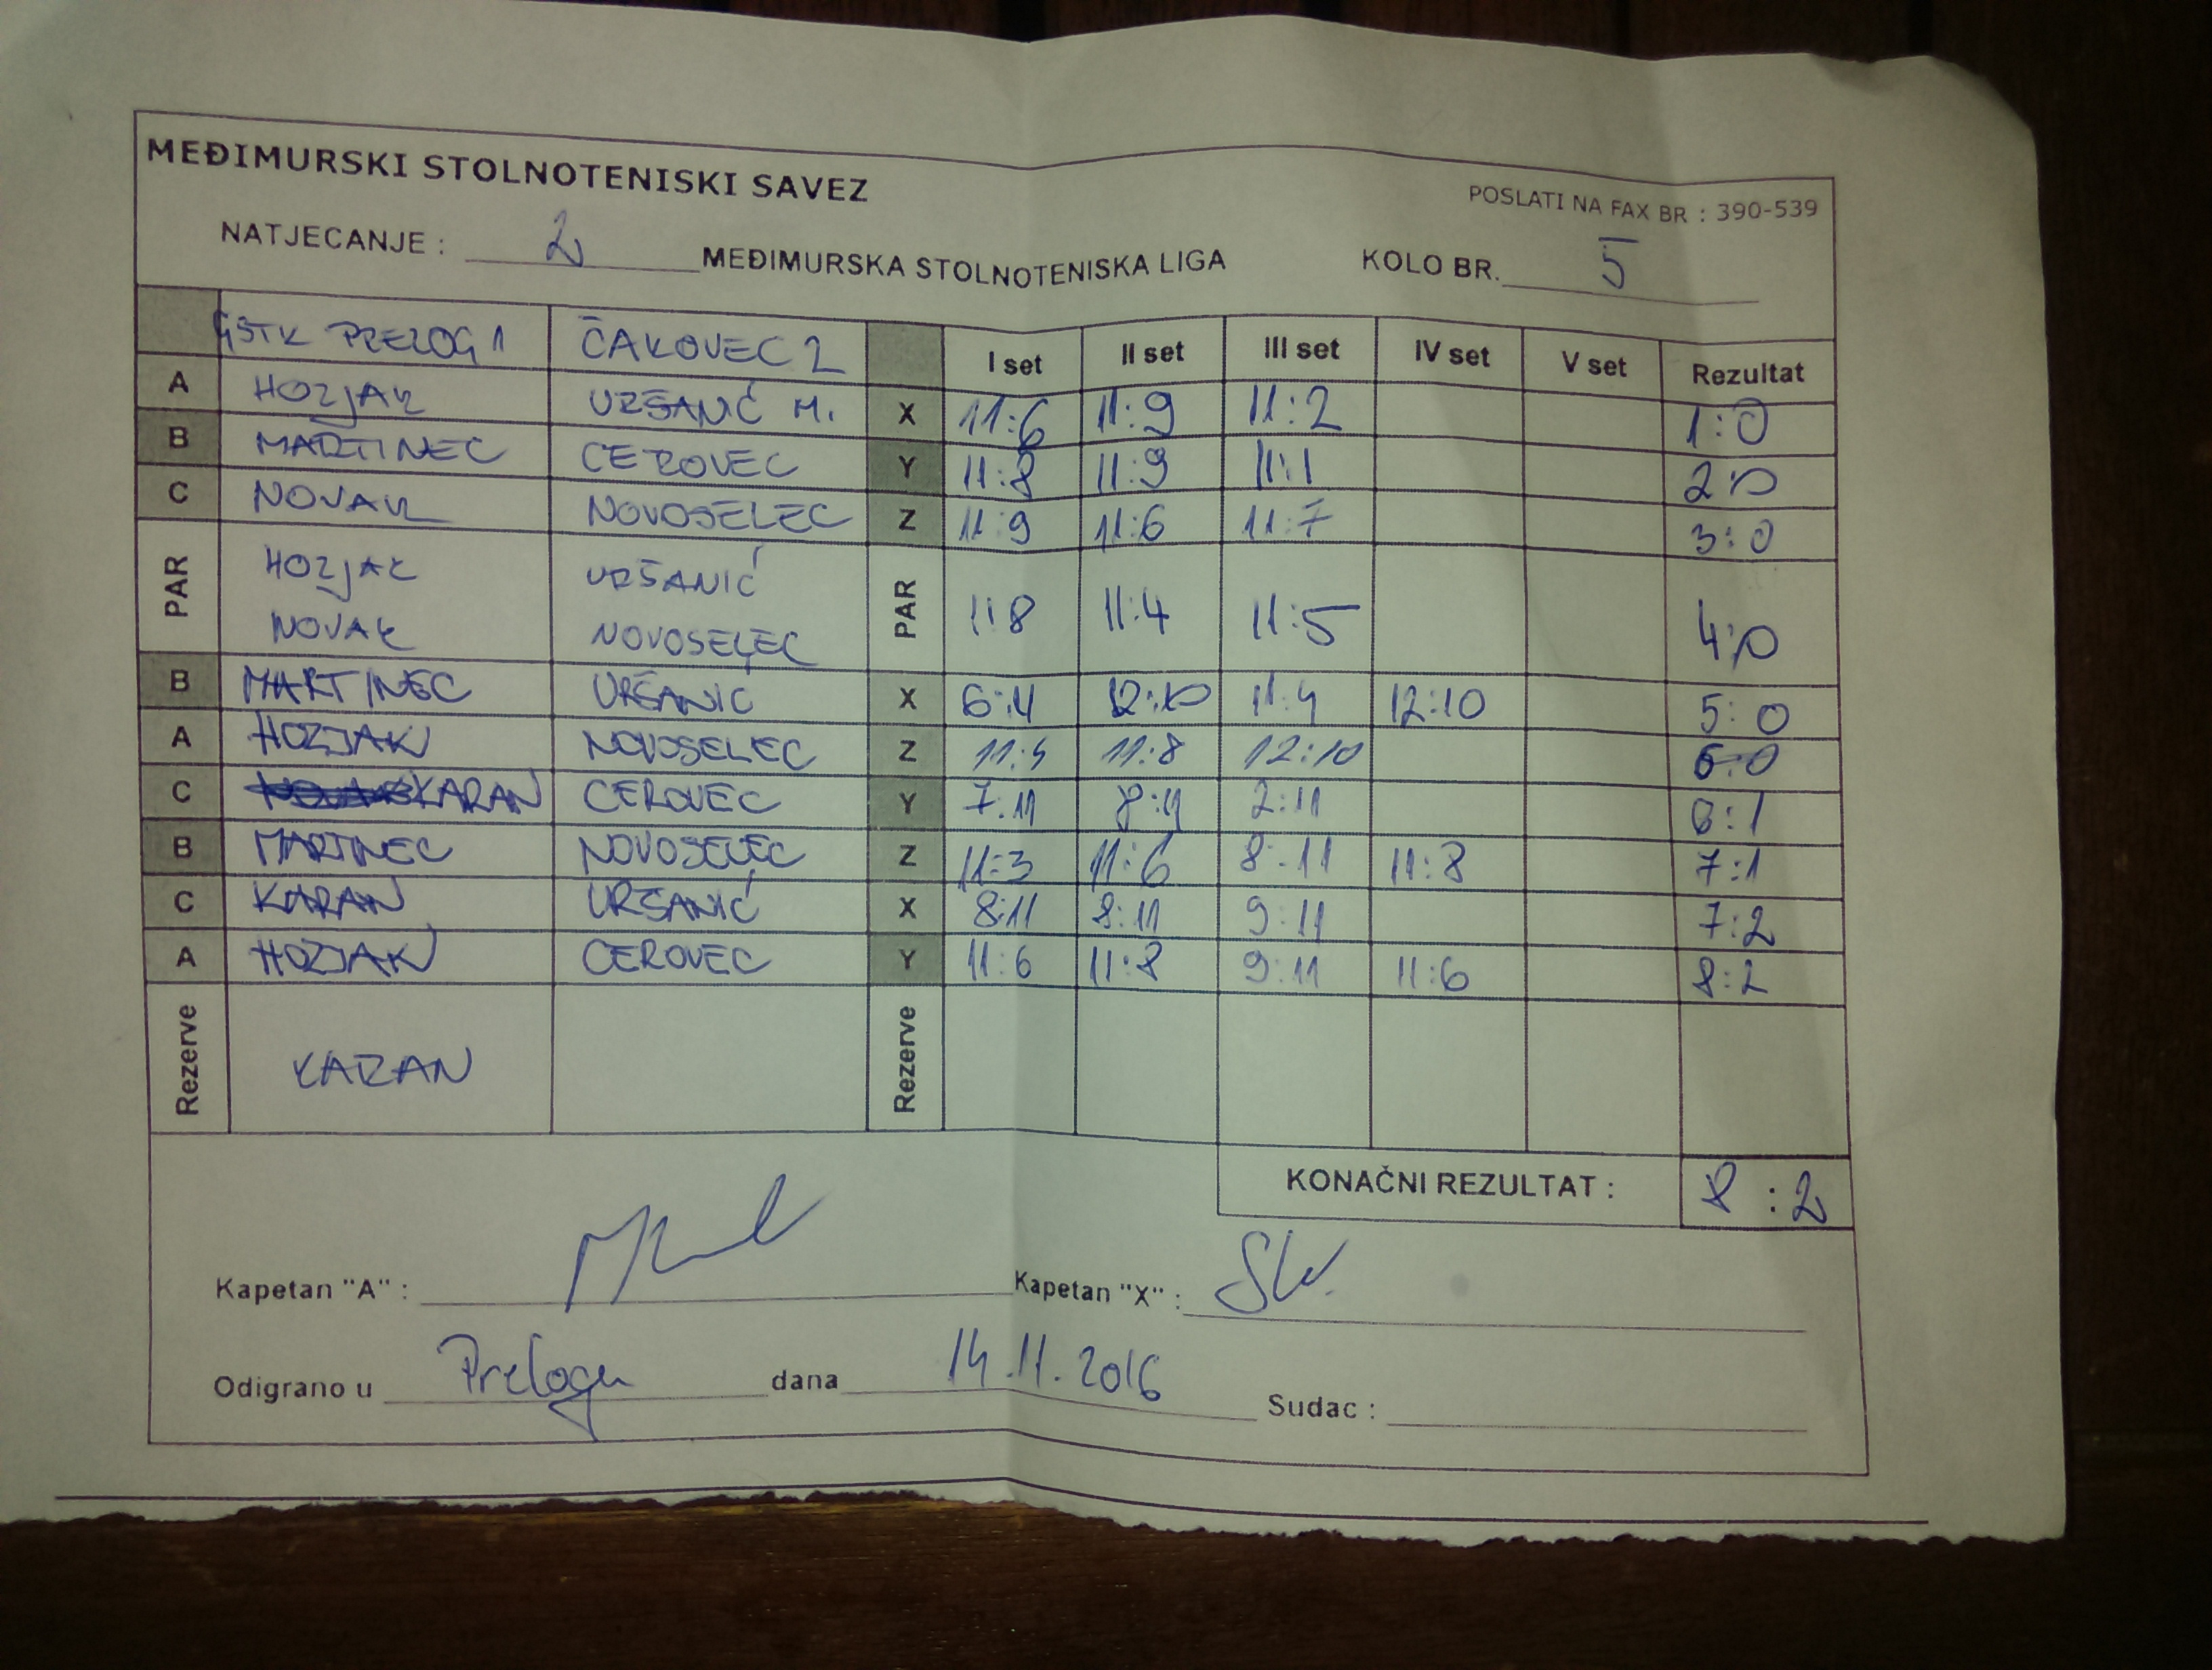 MEĐIMURSKI STOLNOTENISKI SAVEZ
POSLATI NA FAX BR : 390-539
NATJECANJE : 2 MEĐIMURSKA STOLNOTENISKA LIGA KOLO BR. 5
GSTK PRELOG 1 ČAKOVEC 2 I set II set III set IV set V set Rezultat
A HOZJAK URŠANIĆ M. X 11:6 11:9 11:2 1:0
B MARTINEC CEROVEC Y 11:8 11:9 11:1 2:0
C NOVAK NOVOSELEC Z 11:9 11:6 11:7 3:0
PAR HOZJAK URŠANIĆ PAR 11:8 11:4 11:5 4:0
NOVAK NOVOSELEC
B MARTINEC URŠANIC X 6:11 12:10 11:9 12:10 5:0
A HOZJAK NOVOSELEC Z 11:5 11:8 12:10 6:0
C KARAN CEROVEC Y 7:11 8:11 2:11 6:1
B MARTINEC NOVOSELEC Z 11:3 11:6 8:11 11:8 7:1
C KARAN URŠANIĆ X 8:11 8:11 9:11 7:2
A HOZJAK CEROVEC Y 11:6 11:8 9:11 11:6 8:2
Rezerve KARAN Rezerve
KONAČNI REZULTAT : 8:2
Kapetan "A" : Kapetan "X" :
Odigrano u Prelogu dana 14.11.2016 Sudac :